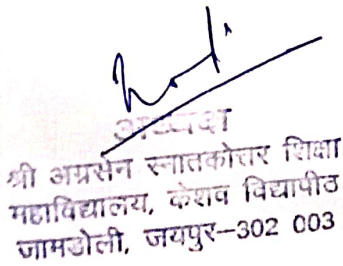 अध्यक्ष
श्री अग्रसेन स्नातकोत्तर शिक्षा
महाविद्यालय, केशव विद्यापीठ
जामडोली, जयपुर-302 003